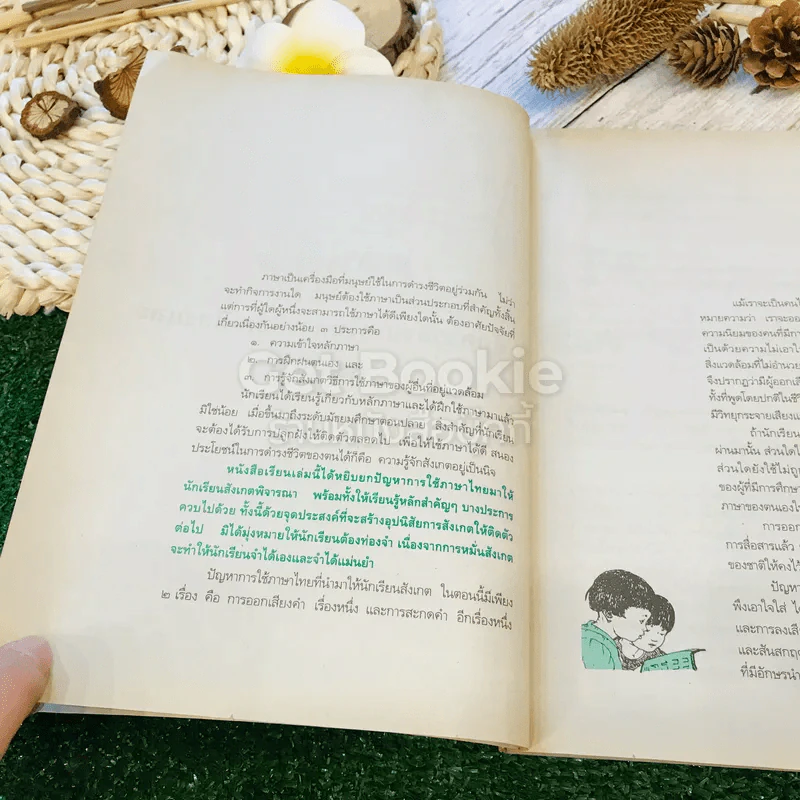 ภาษาเป็นเครื่องมือที่มนุษย์ใช้ในการดำรงชีวิตอยู่ร่วมกัน ไม่ว่า
จะทำกิจการงานใด มนุษย์ต้องใช้ภาษาเป็นส่วนประกอบที่สำคัญทั้งสิ้น
แต่การที่ผู้ใดผู้หนึ่งจะสามารถใช้ภาษาได้ดีเพียงใดนั้น ต้องอาศัยปัจจัยที่
เกี่ยวเนื่องกันอย่างน้อย ๓ ประการคือ
๑. ความเข้าใจหลักภาษา
๒. การฝึกฝนตนเอง และ
๓. การรู้จักสังเกตวิธีการใช้ภาษาของผู้อื่นที่อยู่แวดล้อม
นักเรียนได้เรียนรู้เกี่ยวกับหลักภาษาและได้ฝึกใช้ภาษามาแล้ว
มิใช่น้อย เมื่อขึ้นมาถึงระดับมัธยมศึกษาตอนปลาย สิ่งสำคัญที่นักเรียน
จะต้องได้รับการปลูกฝังให้ติดตัวตลอดไป เพื่อให้ใช้ภาษาได้ดี สนอง
ประโยชน์ในการดำรงชีวิตของตนได้ก็คือ ความรู้จักสังเกตอยู่เป็นนิจ
หนังสือเรียนเล่มนี้ได้หยิบยกปัญหาการใช้ภาษาไทยมาให้
นักเรียนสังเกตพิจารณา พร้อมทั้งให้เรียนรู้หลักสำคัญๆ บางประการ
ควบไปด้วย ทั้งนี้ด้วยจุดประสงค์ที่จะสร้างอุปนิสัยการสังเกตให้ติดตัว
ต่อไป มิได้มุ่งหมายให้นักเรียนต้องท่องจำ เนื่องจากการหมั่นสังเกต
จะทำให้นักเรียนจำได้เองและจำได้แม่นยำ
ปัญหาการใช้ภาษาไทยที่นำมาให้นักเรียนสังเกต ในตอนนี้มีเพียง
๒ เรื่อง คือ การออกเสียงคำ เรื่องหนึ่ง และการสะกดคำ อีกเรื่องหนึ่ง
Got Bookie
แม้เราจะเป็นคนไ
หมายความว่า เราจะออก
ความนิยมของคนที่มีการ
เป็นด้วยความไม่เอาใ
สิ่งแวดล้อมที่ไม่อำนวย
จึงปรากฏว่ามีผู้ออกเสี
ทั้งที่พูดโดยปกติในชีวิ
มีวิทยุกระจายเสียงแ
ถ้านักเรียน
ผ่านมานั้น ส่วนใดใ
ส่วนใดยังใช้ไม่ถูก
ของผู้ที่มีการศึกษา
ภาษาของตนเองใ
การออก
การสื่อสารแล้ว
ของชาติให้คงไว้
ปัญห
พึงเอาใจใส่ ไ
และการลงเสี
และสันสกฤต
ที่มีอักษรนำ